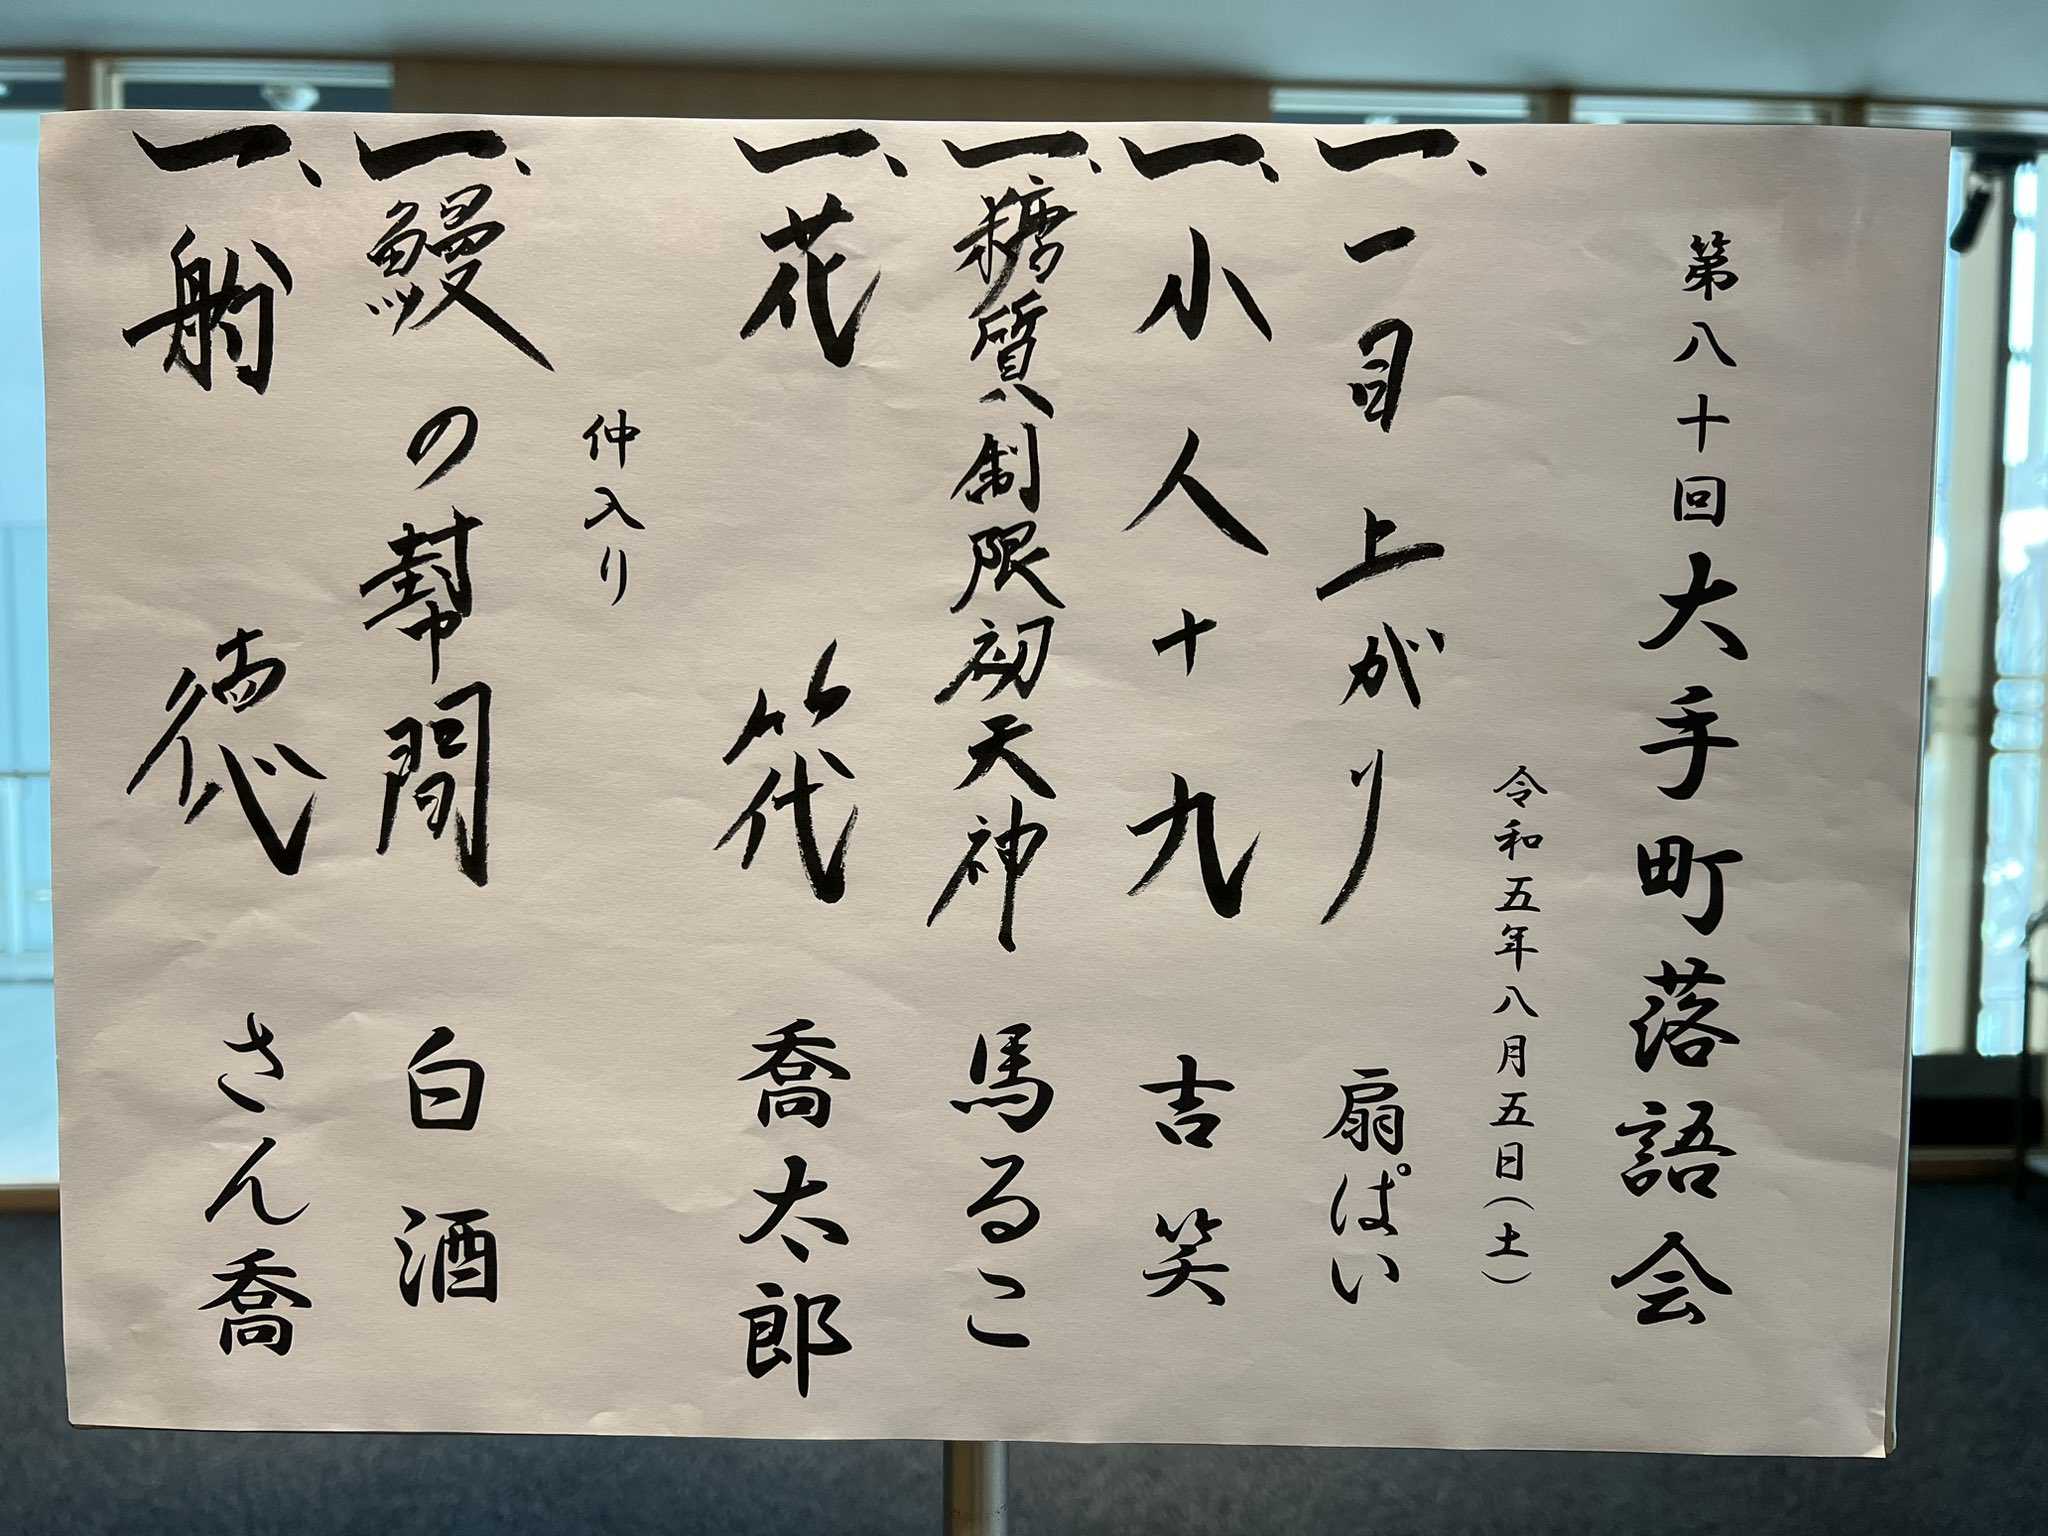 第八十回大手町落語会
令和五年八月五日(土)
一、一目上がり 扇ぱい
一、小人十九 吉笑
一、糖質制限初天神 馬るこ
一、花筏 喬太郎
仲入り
一、鰻の幇間 白酒
一、船徳 さん喬